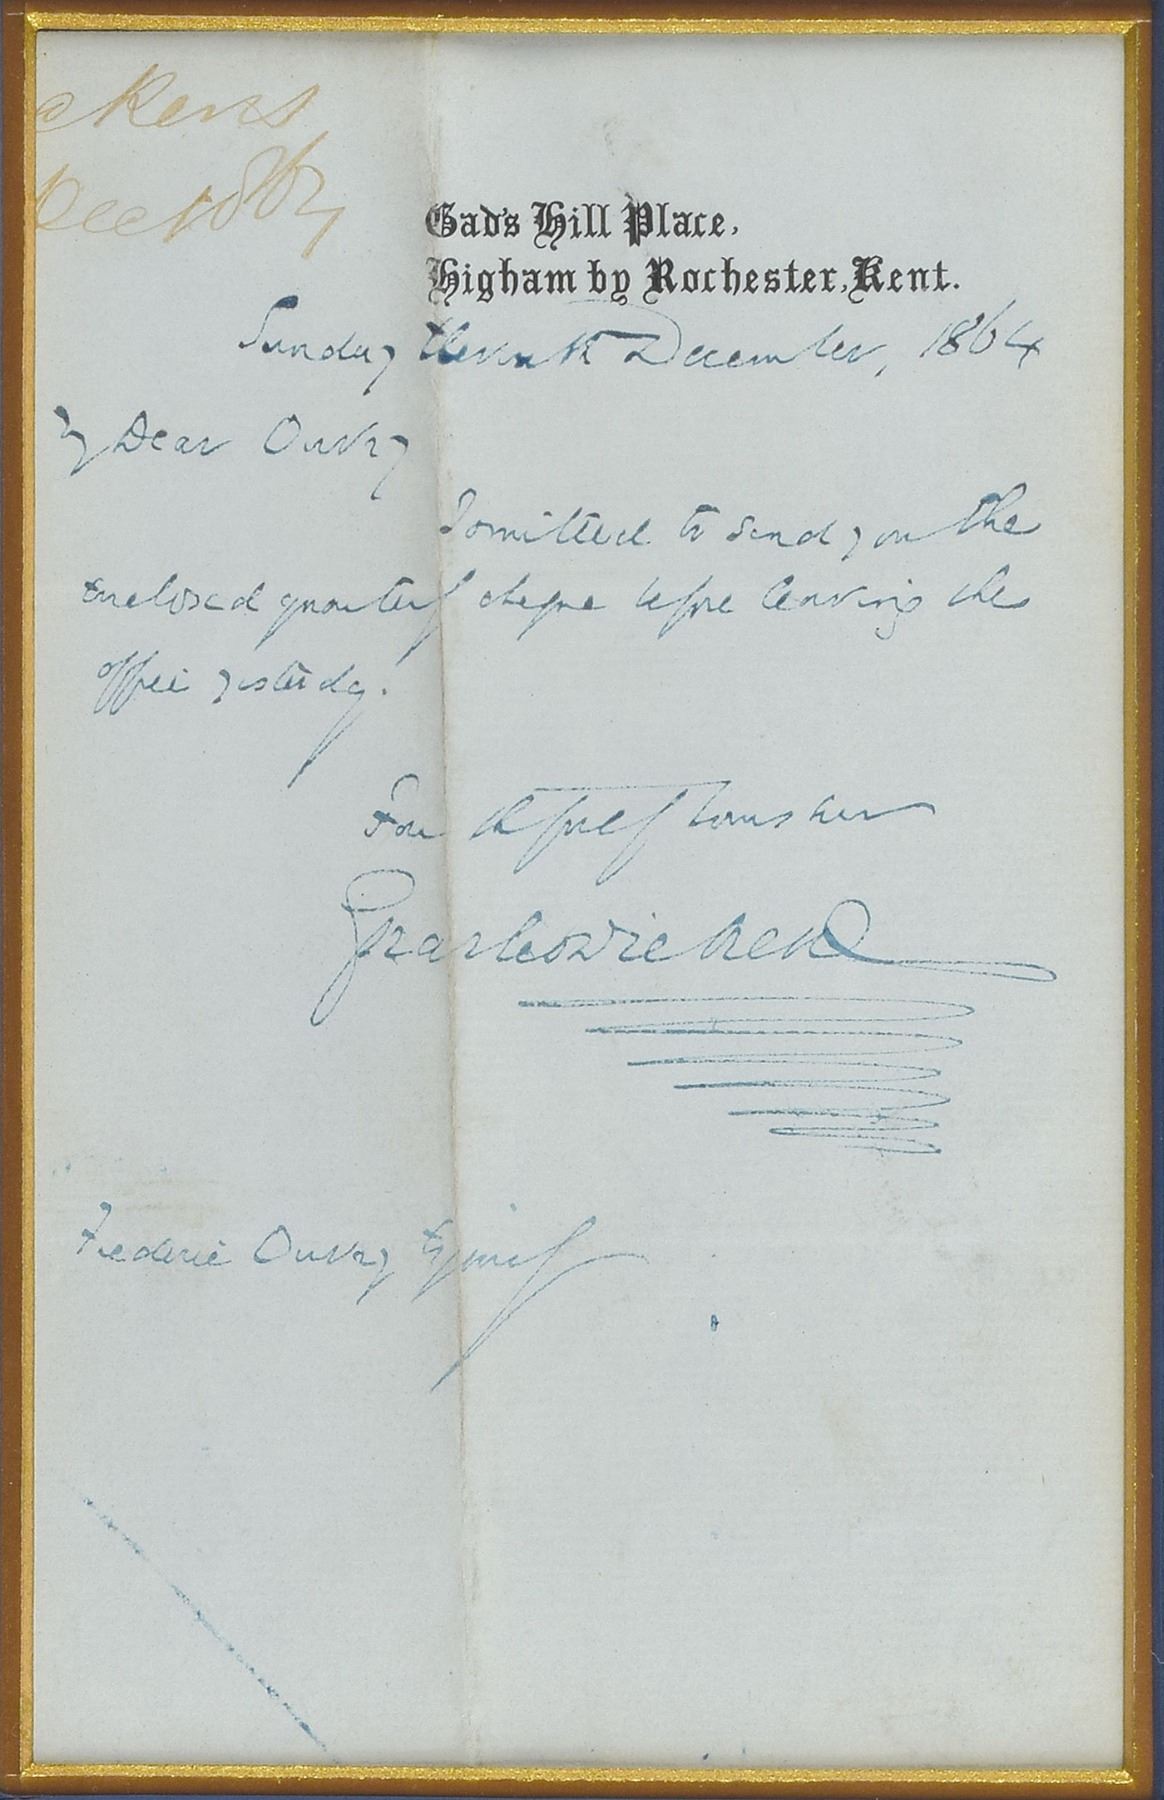 ckens
Dec 1864
Gad's Hill Place,
Higham by Rochester, Kent.
Sunday Eleventh December, 1864
My Dear Ouvry
I omitted to send you the
enclosed quarter's cheque before leaving the
office yesterday.
Ever
Charles Dickens
Frederic Ouvry Esquire